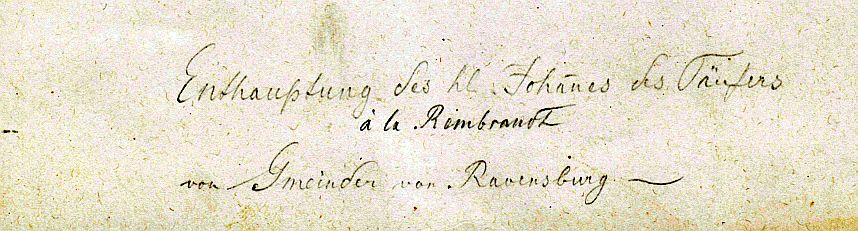 Enthauptung des hl. Johañes des Täufers
à la Rembrandt
von Gmeinder von Ravensburg —